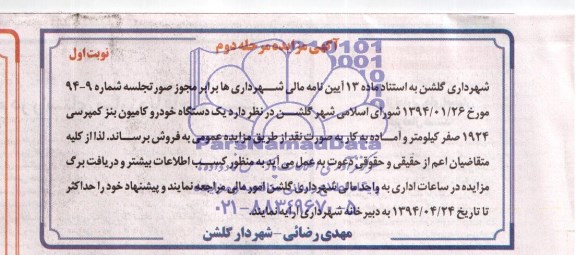 آگهی مزایده مرحله دوم
نوبت اول
شهرداری گلشن به استناد ماده ۱۳ آیین نامه مالی شهرداری ها برابر مجوز صورتجلسه شماره ۹-۹۴
مورخ ۱۳۹۴/۰۱/۲۶ شورای اسلامی شهر گلشن در نظر دارد یک دستگاه خودرو کامیون بنز کمپرسی
۱۹۲۴ صفر کیلومتر و آماده به کار به صورت نقد از طریق مزایده عمومی به فروش برساند. لذا از کلیه
متقاضیان اعم از حقیقی و حقوقی دعوت به عمل می آید به منظور کسب اطلاعات بیشتر و دریافت برگ
مزایده در ساعات اداری به واحد مالی شهرداری گلشن امور مالی مراجعه نمایند و پیشنهاد خود را حداکثر
تا تاریخ ۱۳۹۴/۰۴/۲۴ به دبیرخانه شهرداری ارایه نمایند.
مهدی رضائی - شهردار گلشن
ParsNamadData
۰۲۱-۸۸۳۴۹۶۷۰-۵